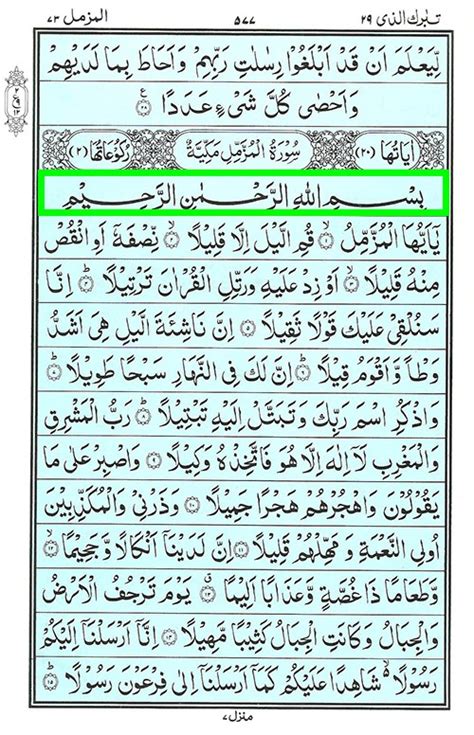 تبٰرك الذى ٢٩
٥٧٧
المزمل ٧٣
لِّيَعْلَمَ اَنْ قَدْ اَبْلَغُوْا رِسٰلٰتِ رَبِّهِمْ وَاَحَاطَ بِمَا لَدَيْهِمْ
وَاَحْصٰى كُلَّ شَىْءٍ عَدَدًا ۝٢٨
اٰيَاتُهَا (٢٠) سُوْرَةُ الْمُزَّمِّلِ مَكِّيَّةٌ رُكُوْعَاتُهَا (٢)
بِسْمِ اللّٰهِ الرَّحْمٰنِ الرَّحِيْمِ
يٰۤاَيُّهَا الْمُزَّمِّلُ ۝١ قُمِ الَّيْلَ اِلَّا قَلِيْلًا ۝٢ نِّصْفَهٗۤ اَوِ انْقُصْ
مِنْهُ قَلِيْلًا ۝٣ اَوْ زِدْ عَلَيْهِ وَرَتِّلِ الْقُرْاٰنَ تَرْتِيْلًا ۝٤ اِنَّا
سَنُلْقِىْ عَلَيْكَ قَوْلًا ثَقِيْلًا ۝٥ اِنَّ نَاشِئَةَ الَّيْلِ هِىَ اَشَدُّ
وَطْاً وَّاَقْوَمُ قِيْلًا ۝٦ اِنَّ لَكَ فِى النَّهَارِ سَبْحًا طَوِيْلًا ۝٧
وَاذْكُرِ اسْمَ رَبِّكَ وَتَبَتَّلْ اِلَيْهِ تَبْتِيْلًا ۝٨ رَبُّ الْمَشْرِقِ
وَالْمَغْرِبِ لَاۤ اِلٰهَ اِلَّا هُوَ فَاتَّخِذْهُ وَكِيْلًا ۝٩ وَاصْبِرْ عَلٰى مَا
يَقُوْلُوْنَ وَاهْجُرْهُمْ هَجْرًا جَمِيْلًا ۝١٠ وَذَرْنِىْ وَالْمُكَذِّبِيْنَ
اُولِى النَّعْمَةِ وَمَهِّلْهُمْ قَلِيْلًا ۝١١ اِنَّ لَدَيْنَاۤ اَنْكَالًا وَّجَحِيْمًا ۝١٢
وَّطَعَامًا ذَا غُصَّةٍ وَّعَذَابًا اَلِيْمًا ۝١٣ يَوْمَ تَرْجُفُ الْاَرْضُ
وَالْجِبَالُ وَكَانَتِ الْجِبَالُ كَثِيْبًا مَّهِيْلًا ۝١٤ اِنَّاۤ اَرْسَلْنَاۤ اِلَيْكُمْ
رَسُوْلًا ۙ شَاهِدًا عَلَيْكُمْ كَمَاۤ اَرْسَلْنَاۤ اِلٰى فِرْعَوْنَ رَسُوْلًا ۝١٥
منزل ٧